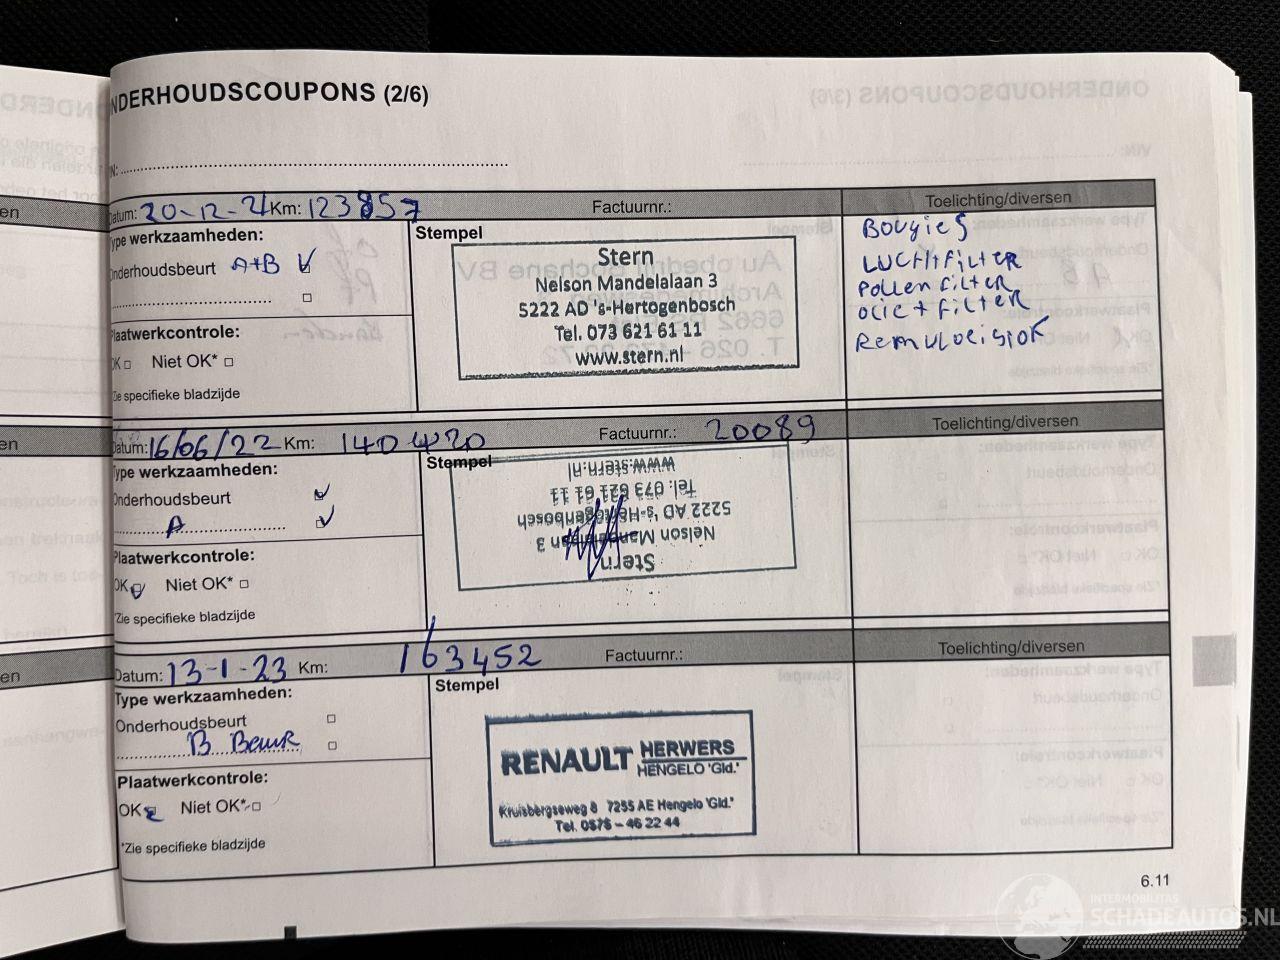 NDERHOUDSCOUPONS (2/6)
N:
Datum: 20-12-21 Km: 123857 Factuurnr.: Toelichting/diversen
Type werkzaamheden:
Onderhoudsbeurt A+B
Plaatwerkcontrole:
OK Niet OK*
Zie specifieke bladzijde
Stempel
Stern
Nelson Mandelalaan 3
5222 AD 's-Hertogenbosch
Tel. 073 621 61 11
www.stern.nl
Bougies
Luchtfilter
Pollenfilter
Olie + filter
Remvloeistof
Datum: 16/06/22 Km: 140420 Factuurnr.: 20089 Toelichting/diversen
Type werkzaamheden:
Onderhoudsbeurt
A
Plaatwerkcontrole:
OK Niet OK*
*Zie specifieke bladzijde
Stempel
Stern
Nelson Mandelalaan 3
5222 AD 's-Hertogenbosch
Tel. 073 621 61 11
www.stern.nl
Datum: 13-1-23 Km: 163452 Factuurnr.: Toelichting/diversen
Type werkzaamheden:
Onderhoudsbeurt
B Beurt
Plaatwerkcontrole:
OK Niet OK*
*Zie specifieke bladzijde
Stempel
RENAULT HERWERS
HENGELO 'Gld.'
Kruisbergseweg 8 7255 AE Hengelo 'Gld.'
Tel. 0575 – 46 22 44
6.11
INTERMOBILITAS
SCHADEAUTOS.NL